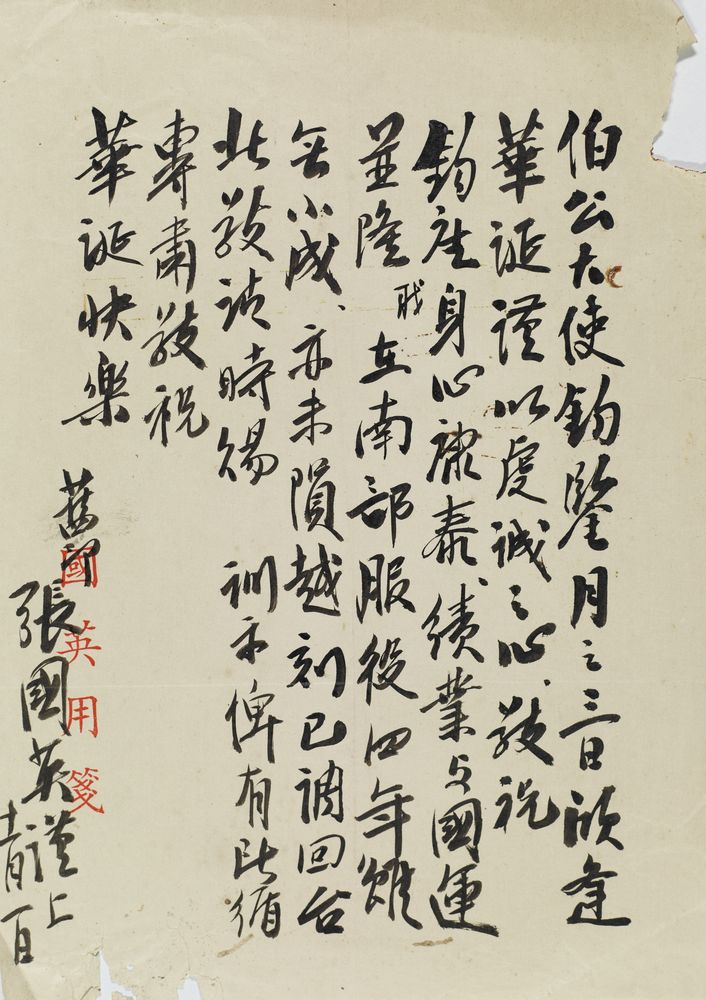 伯公大使鈞鑒月之三日欣逢
華誕謹以虔誠之心、敬祝
鈞座身心康泰、績業与國運
並隆 職在南部服役四年雖
無小成、亦未隕越刻已調回台
北敬請時賜 訓示俾有所循
專肅敬祝
華誕快樂
舊部
張國英謹上
國英用箋